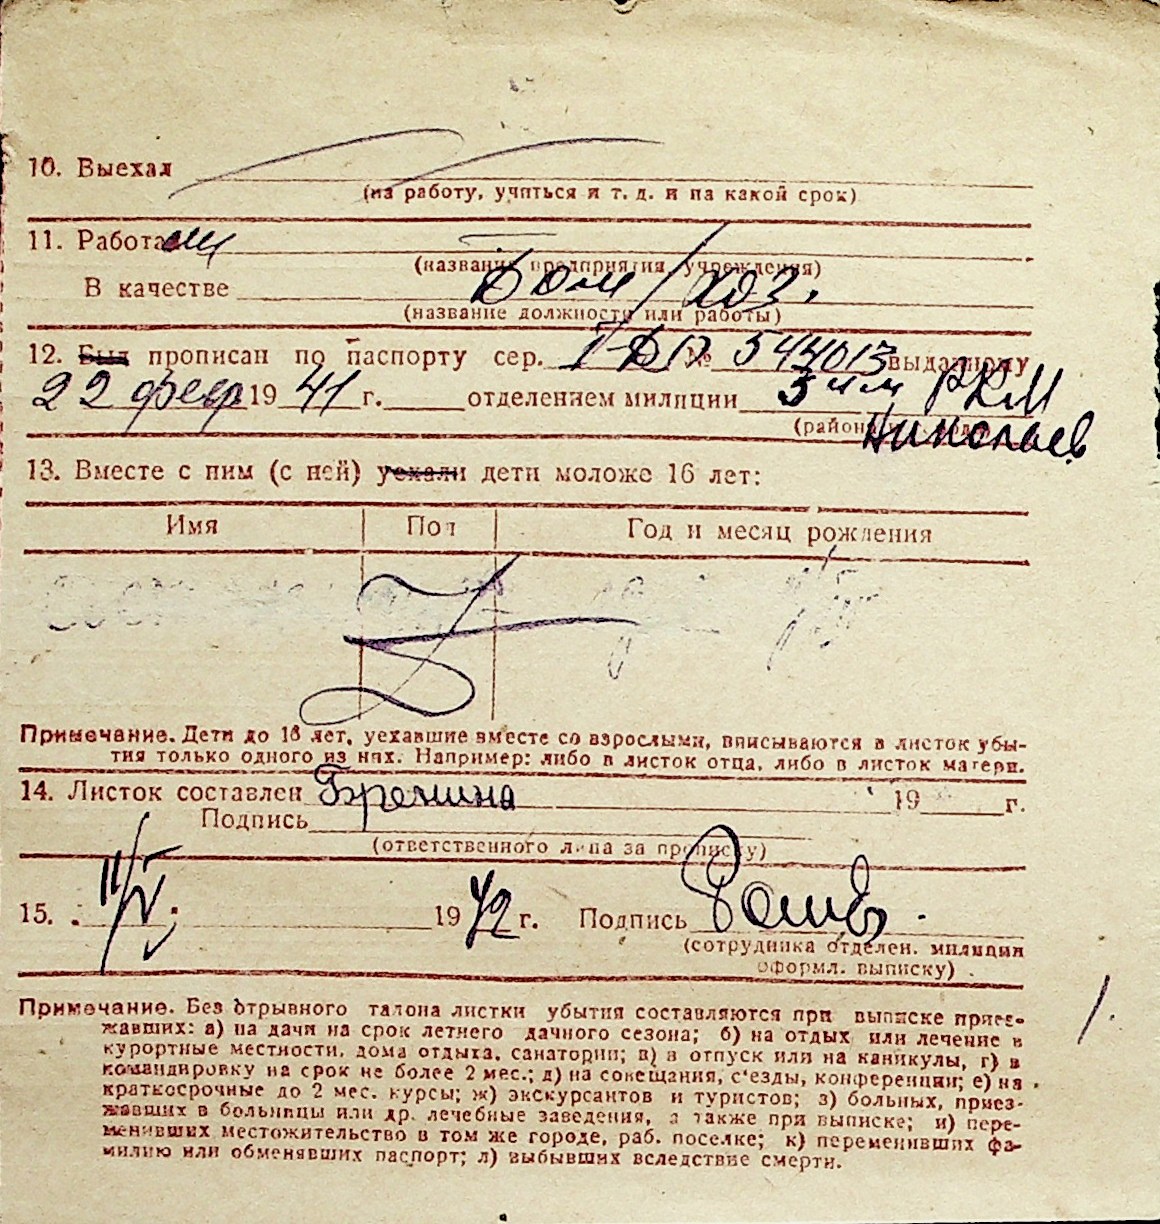 10. Выехал
(на работу, учиться и т. д. и на какой срок)
11. Работа
(название предприятия, учреждения)
В качестве Дом/хоз.
(название должности или работы)
12. Был прописан по паспорту сер. № 544013 выданному
22 февр 1941 г. отделением милиции 5 им РКМ
(района, Николаев
13. Вместе с ним (с ней) уехали дети моложе 16 лет:
Имя Пол Год и месяц рождения
Примечание. Дети до 16 лет, уехавшие вместе со взрослыми, вписываются в листок убы-
тия только одного из них. Например: либо в листок отца, либо в листок матери.
14. Листок составлен 19 г.
Подпись
(ответственного лица за прописку)
15. 11/V 1942 г. Подпись
(сотрудника отделен. милиции
оформл. выписку)
Примечание. Без отрывного талона листки убытия составляются при выписке приез-
жавших: а) на дачи на срок летнего дачного сезона; б) на отдых или лечение в
курортные местности, дома отдыха, санатории; в) в отпуск или на каникулы, г) в
командировку на срок не более 2 мес.; д) на совещания, с'езды, конференции; е) на
краткосрочные до 2 мес. курсы; ж) экскурсантов и туристов; з) больных, приез-
жавших в больницы или др. лечебные заведения, а также при выписке; и) пере-
менивших местожительство в том же городе, раб. поселке; к) переменивших фа-
милию или обменявших паспорт; л) выбывших вследствие смерти.